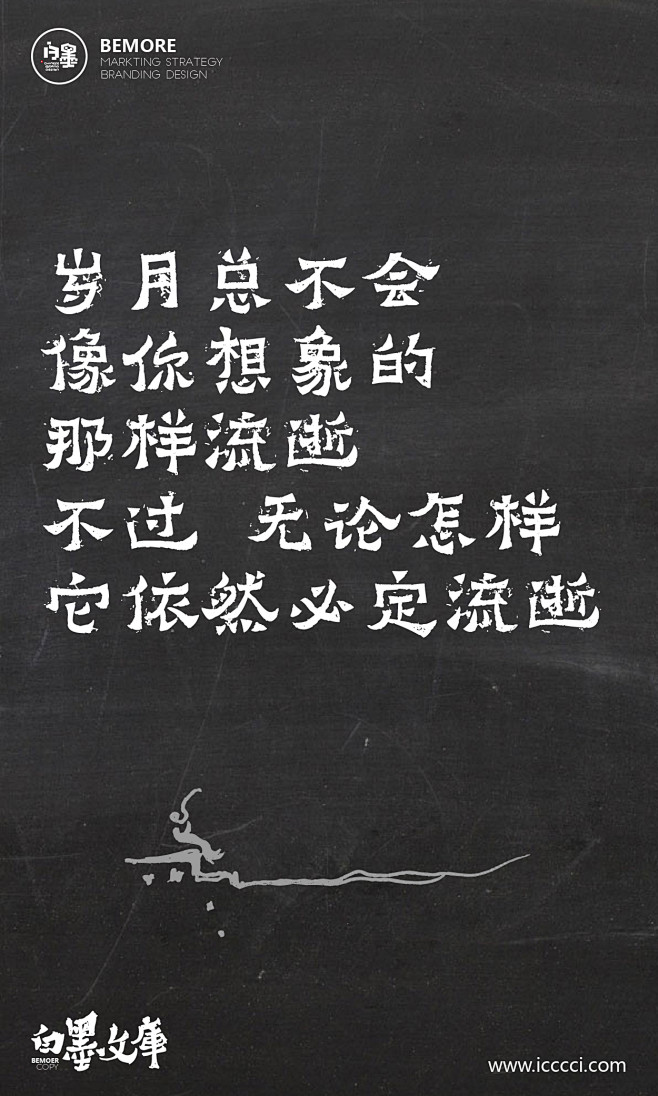 白墨
BEMORE
MARKTING STRATEGY
BRANDING DESIGN
岁月总不会
像你想象的
那样流逝
不过 无论怎样
它依然必定流逝
白墨文庫
BEMOER
COPY
www.icccci.com